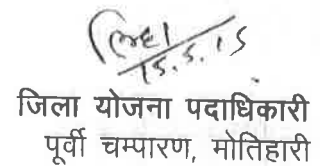 15.5.15
जिला योजना पदाधिकारी
पूर्वी चम्पारण, मोतिहारी